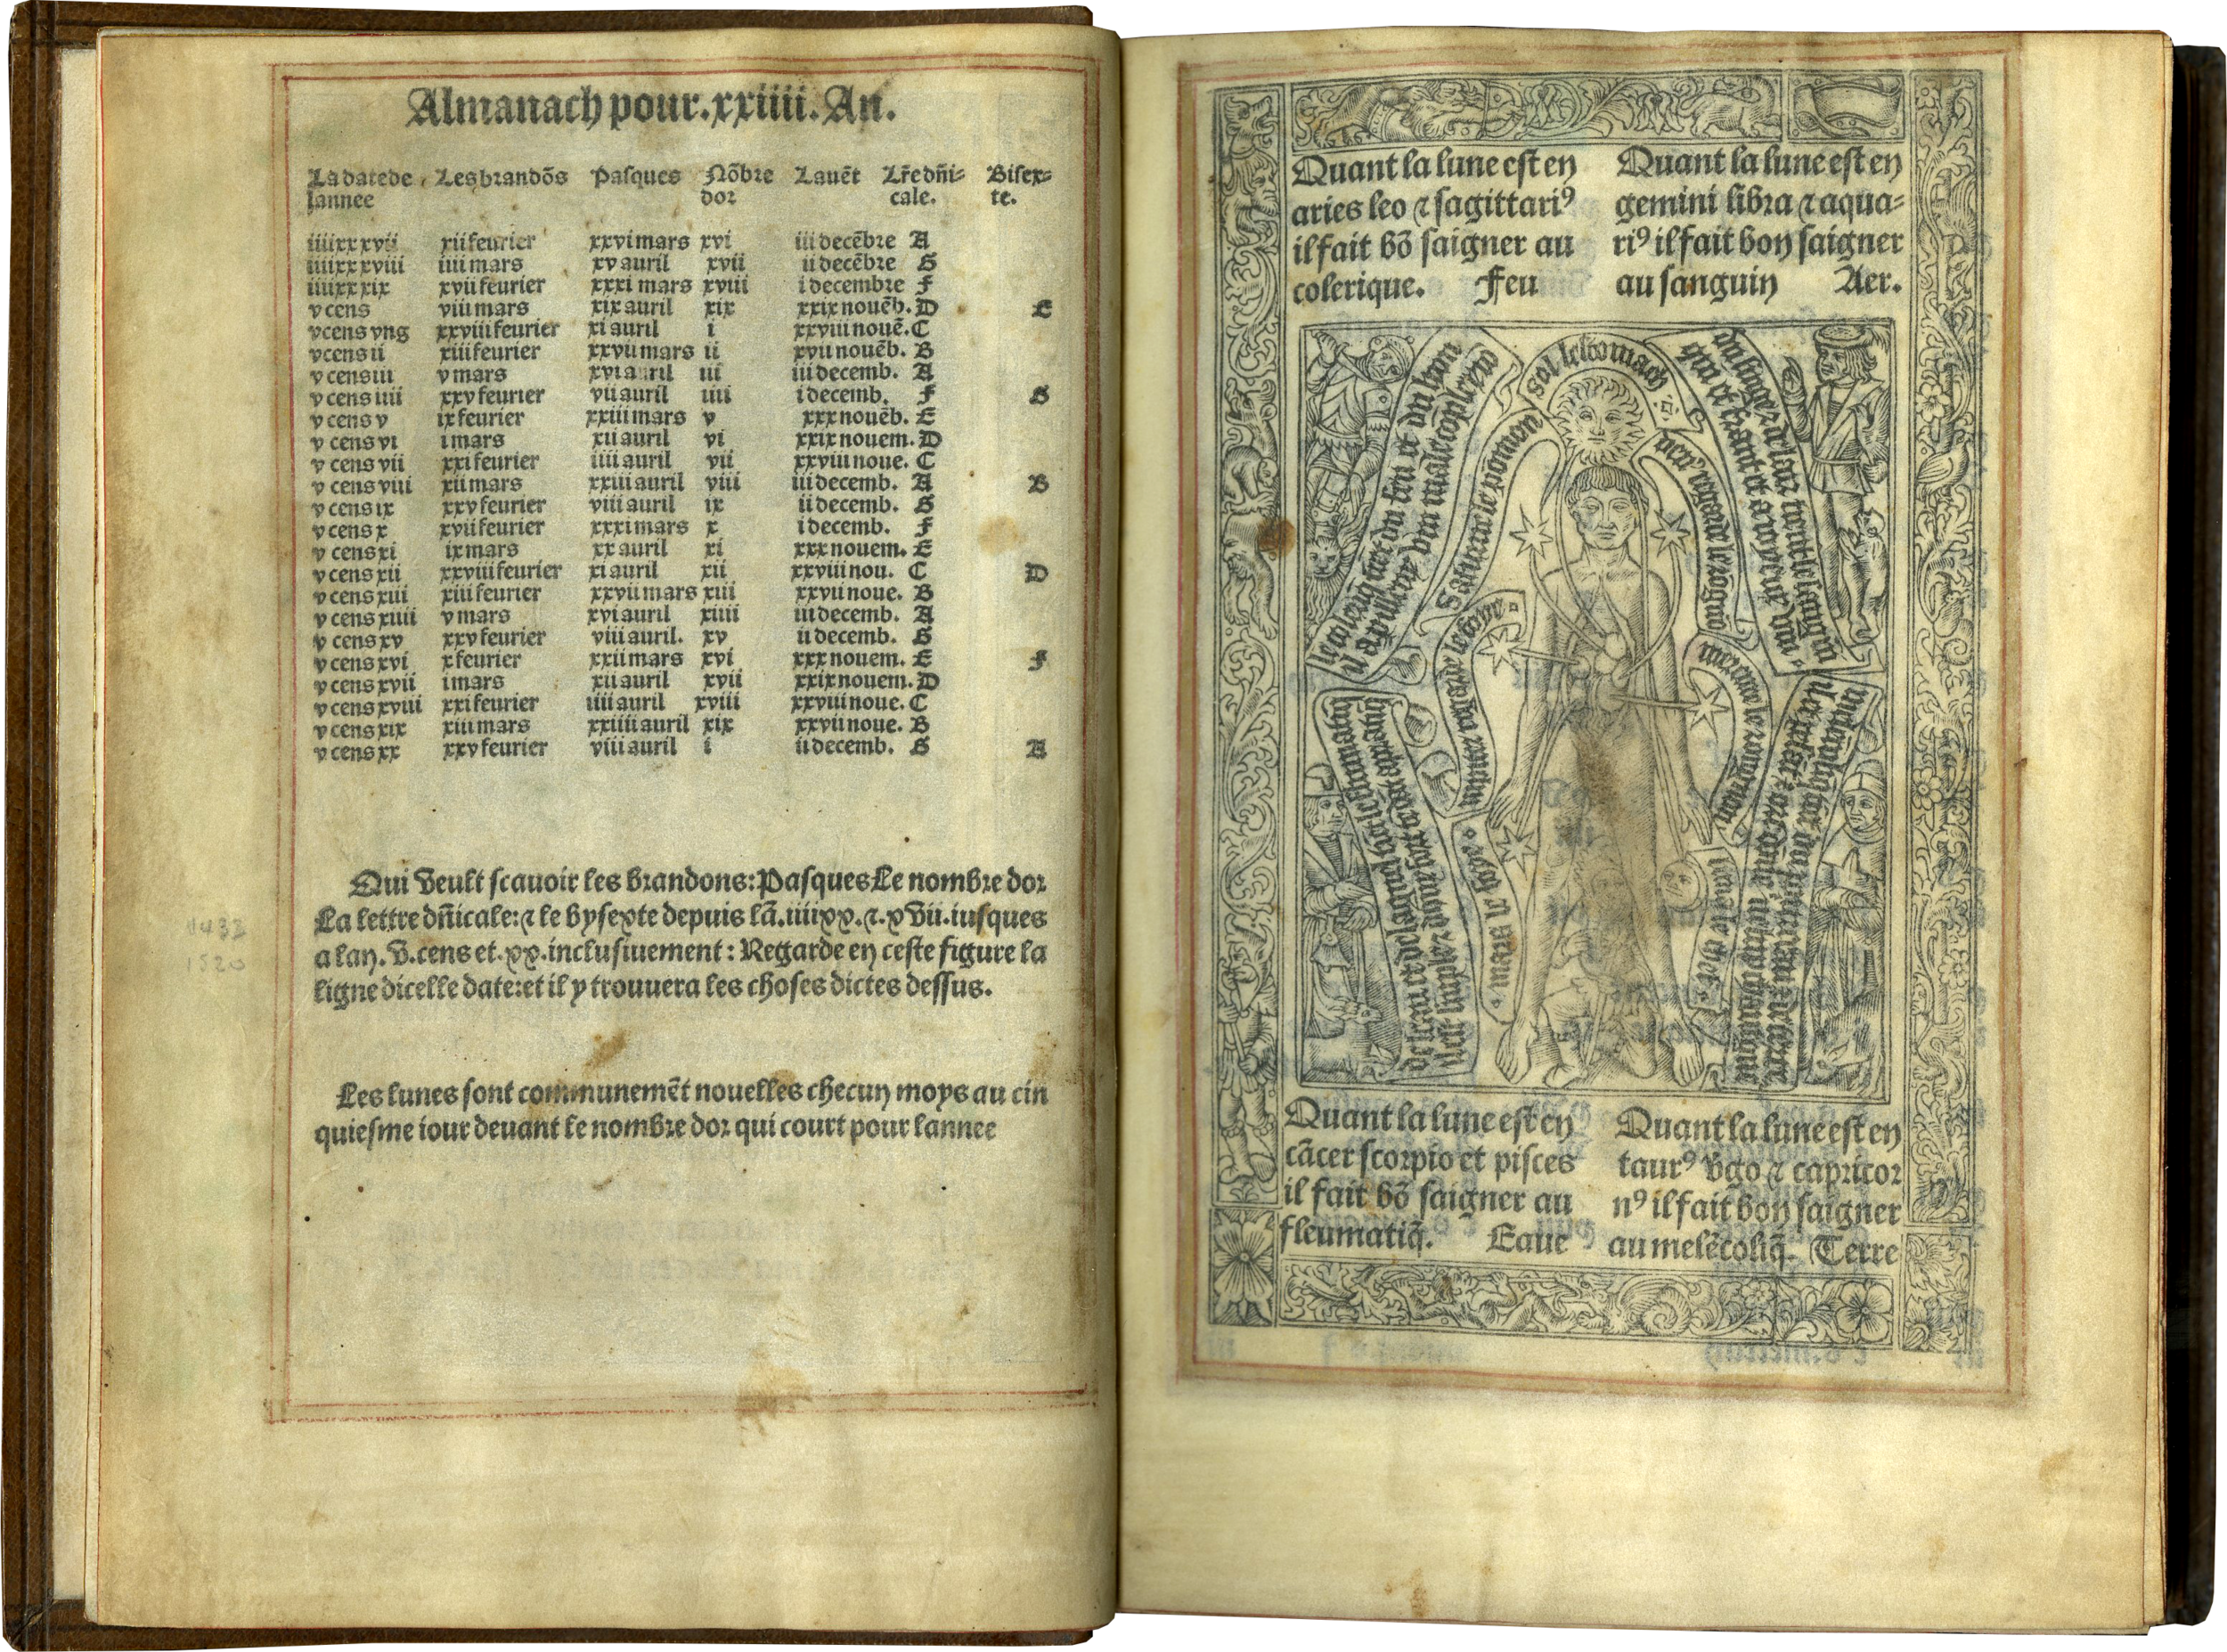 Almanach pour .xxiiii. An.
La date de lannee Les brandõs Pasques Nõbre dor Lauẽt Lr̃e dñi=cale. Bisex=te.
iiiixx xvii xii feurier xxvi mars xvi iii decẽbre A
iiiixx xviii iiii mars xv auril xvii ii decẽbre G
iiiixx xix xvii feurier xxxi mars xviii i decembre F
v cens viii mars xix auril xix xxix nouẽb. D E
v cens vng xxviii feurier xi auril i xxviii nouẽ. C
v cens ii xiii feurier xxvii mars ii xxvii nouẽb. B
v cens iii v mars xvi auril iii iii decemb. A
v cens iiii xxv feurier vii auril iiii i decemb. F G
v cens v ix feurier xxiii mars v xxx nouẽb. E
v cens vi i mars xii auril vi xxix nouem. D
v cens vii xxi feurier iiii auril vii xxviii noue. C
v cens viii xii mars xxiii auril viii iii decemb. A B
v cens ix xxv feurier viii auril ix ii decemb. G
v cens x xvii feurier xxxi mars x i decemb. F
v cens xi ix mars xx auril xi xxx nouem. E
v cens xii xxviii feurier xi auril xii xxviii nou. C D
v cens xiii xiii feurier xxvii mars xiii xxvii noue. B
v cens xiiii v mars xvi auril xiiii iii decemb. A
v cens xv xxv feurier viii auril. xv ii decemb. G
v cens xvi x feurier xxii mars xvi xxx nouem. E F
v cens xvii i mars xii auril xvii xxix nouem. D
v cens xviii xxi feurier iiii auril xviii xxviii noue. C
v cens xix xiii mars xxiiii auril xix xxvii noue. B
v cens xx xxv feurier viii auril i ii decemb. G A
Qui veult scauoir les brandons: Pasques Le nombre dor
La lettre dñicale: ⁊ le bysexte depuis lã. iiiixx. ⁊. xvii. iusques
a lan. v. cens et. xx. inclusiuement: Regarde en ceste figure la
ligne dicelle date: et il y trouuera les choses dictes dessus.
1520
Les lunes sont communemẽt nouelles checun moys au cin
quiesme iour deuant le nombre dor qui court pour lannee
Quant la lune est en
aries leo ⁊ sagittariꝰ
il fait bõ saigner au
colerique. Feu
Quant la lune est en
gemini libra ⁊ aqua=
riꝰ il fait bon saigner
au sanguin Aer.
sol lestomach
Saturne le põmon
Jupiter le foye
mars le fiel
lune le chef
Quant la lune est en
cãcer scorpio et pisces
il fait bõ saigner au
fleumatiq̃. Eaue
Quant la lune est en
taurꝰ vgo ⁊ capricor
nꝰ il fait bon saigner
au melẽcoliq̃. Terre